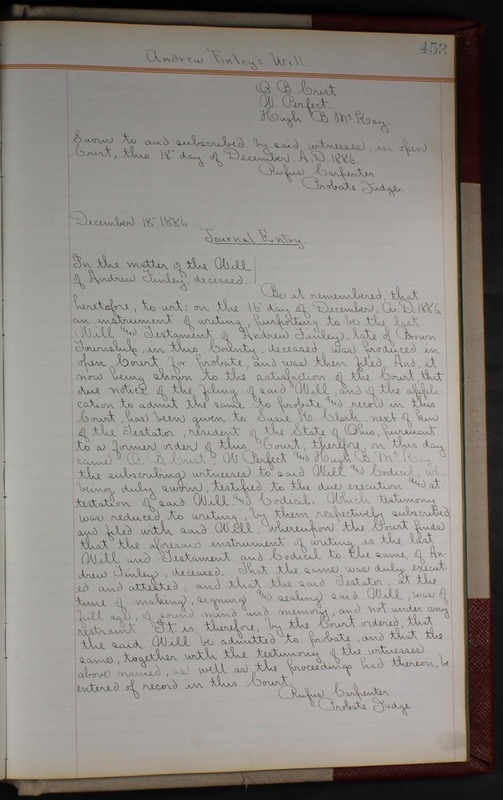 453
Andrew Finleys Will
O. B. Crist
W. Perfect.
Hugh B. McKay.
Sworn to and subscribed by said witnesses, in open
Court, this 18" day of December. A.D. 1886.
Rufus Carpenter
Probate Judge.
December 18" 1886
Journal Entry.
In the matter of the Will
of Andrew Finley. deceased
Be it remembered, that
heretofore, to wit: on the 15" day of December. A.D. 1886
an instrument of writing, purporting to be the last
Will and Testament of Andrew Finley. late of Brown
Township, in this County, deceased, was produced in
open Court for probate, and was then filed. And, it
now being shown to the satisfaction of the Court, that
due notice of the filing of said Will, and of the appli-
cation to admit the same to probate and record in this
Court, has been given to Susie K. Clark, next of kin
of the Testator, resident of the State of Ohio, pursuant
to a former order of this Court, therefore, on this day
came O. B. Crist, W Perfect and Hugh B. McKay
the subscribing witnesses to said Will and Codical, who
being duly sworn, testified to the due execution and at
testation of said Will and Codical. Which testimony
was reduced to writing, by them respectively subscribed
and filed with said Will, whereupon the Court finds
that the aforesaid instrument of writing is the last
Will and Testament and Codical to the same, of An-
drew Finley, deceased. That the same was duly execut-
ed and attested, and that the said Testator, at the
time of making, signing and sealing said Will, was of
full age, of sound mind and memory, and not under any
restraint. It is, therefore, by the Court ordered, that
the said Will be admitted to probate, and that the
same, together with the testimony of the witnesses
above named, as well as the proceedings had thereon, be
entered of record in this Court
Rufus Carpenter
Probate Judge